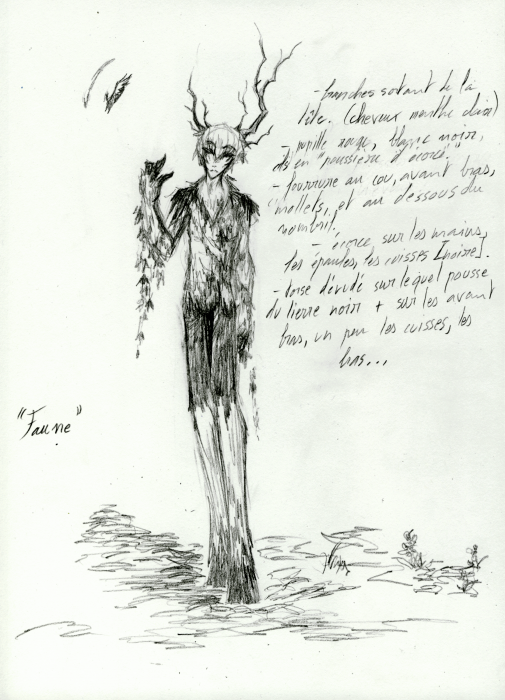 - branches sortant de la
tête. (cheveux menthe clair)
- pupille rouge, blanc noir,
cils en "poussière d'écorce."
- fourrure au cou, avant bras,
mollets, et au dessous du
nombril.
- écorce sur les mains,
les épaules, les cuisses [noire].
- torse dénudé sur lequel pousse
du lierre noir + sur les avant
bras, un peu les cuisses, les
bras...
"Faune"